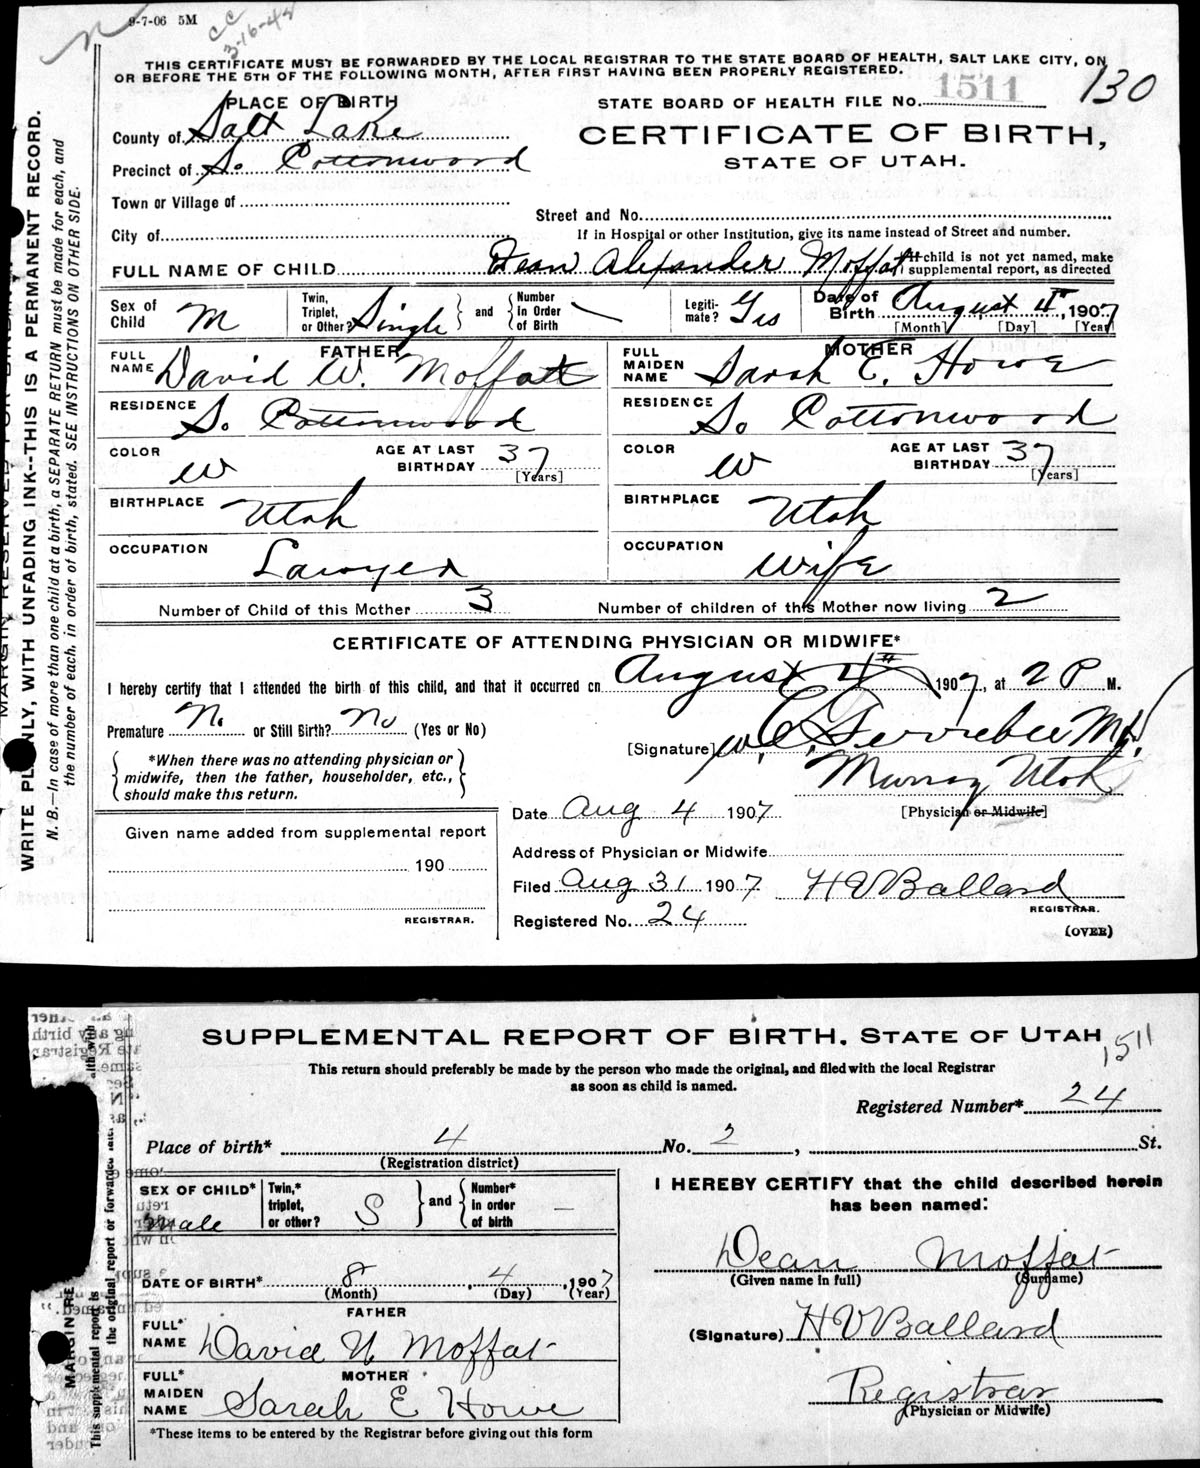 9-7-06 5M
CC
3-16-48
THIS CERTIFICATE MUST BE FORWARDED BY THE LOCAL REGISTRAR TO THE STATE BOARD OF HEALTH, SALT LAKE CITY, ON
OR BEFORE THE 5TH OF THE FOLLOWING MONTH, AFTER FIRST HAVING BEEN PROPERLY REGISTERED.
130
PLACE OF BIRTH
STATE BOARD OF HEALTH FILE No. 1511
County of Salt Lake
CERTIFICATE OF BIRTH,
STATE OF UTAH.
Precinct of So. Cottonwood
Town or Village of
Street and No.
City of
If in Hospital or other Institution, give its name instead of Street and number.
FULL NAME OF CHILD Dean Alexander Moffat
If child is not yet named, make
supplemental report, as directed
Sex of Child M
Twin, Triplet, or Other? Single and Number In Order of Birth
Legitimate? Yes
Date of Birth August 4th, 1907
[Month] [Day] [Year]
FATHER
FULL NAME David W. Moffatt
MOTHER
FULL MAIDEN NAME Sarah E. Howe
RESIDENCE So Cottonwood
RESIDENCE So Cottonwood
COLOR W
AGE AT LAST BIRTHDAY 37
[Years]
COLOR W
AGE AT LAST BIRTHDAY 37
[Years]
BIRTHPLACE Utah
BIRTHPLACE Utah
OCCUPATION Lawyer
OCCUPATION Wife
Number of Child of this Mother 3
Number of children of this Mother now living 2
CERTIFICATE OF ATTENDING PHYSICIAN OR MIDWIFE*
I hereby certify that I attended the birth of this child, and that it occurred on August 4th 1907, at 2 P M.
Premature No or Still Birth? No (Yes or No)
[Signature]
Murray Utah
[Physician or Midwife]
*When there was no attending physician or
midwife, then the father, householder, etc.,
should make this return.
Date Aug 4 1907
Given name added from supplemental report
190
REGISTRAR.
Address of Physician or Midwife
Filed Aug 31 1907 H V Ballard
REGISTRAR.
Registered No. 24
(OVER)
MARGIN RESERVED FOR BINDING
WRITE PLAINLY, WITH UNFADING INK--THIS IS A PERMANENT RECORD.
N. B.—In case of more than one child at a birth, a SEPARATE RETURN must be made for each, and
the number of each, in order of birth, stated. SEE INSTRUCTIONS ON OTHER SIDE.
SUPPLEMENTAL REPORT OF BIRTH. STATE OF UTAH
1511
This return should preferably be made by the person who made the original, and filed with the local Registrar
as soon as child is named.
Registered Number* 24
Place of birth* 4 No. 2, St.
(Registration district)
SEX OF CHILD* Male
Twin,* triplet, or other? S and Number* in order of birth —
I HEREBY CERTIFY that the child described herein
has been named:
Dean Moffat
(Given name in full) (Surname)
DATE OF BIRTH* 8, 4, 1907
(Month) (Day) (Year)
FATHER
FULL* NAME David W Moffat
(Signature) H V Ballard
MOTHER
FULL* MAIDEN NAME Sarah E Howe
Registrar
(Physician or Midwife)
*These items to be entered by the Registrar before giving out this form